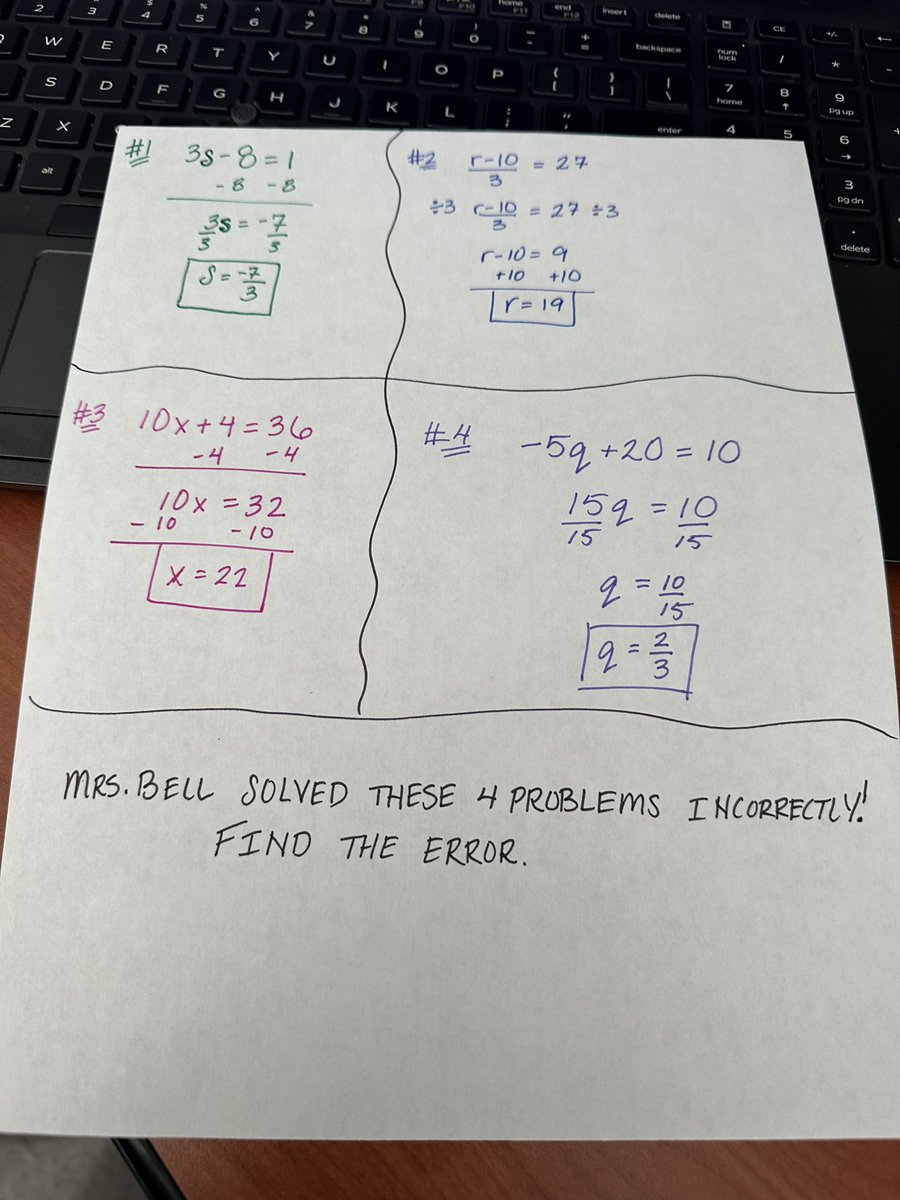 2 3 $ 4 % 5 ^ 6 & 7 * 8 ( 9 ) 0 - + =
F9 F10 home F11 end F12 insert delete
W E R T Y U I O P { [ } ] | \ backspace num lock / * -
CE +/- ←
S D F G H J K L ; " enter 7 home 8 ↑ 9 pg up
Z X 4 5 6 → +
alt 3 pg dn
. delete
#1 3s - 8 = 1
- 8 - 8
3s/3 = -7/3
s = -7/3
#2 r-10/3 = 27
÷3 r-10/3 = 27 ÷3
r-10 = 9
+10 +10
r = 19
#3 10x + 4 = 36
-4 -4
10x = 32
- 10 - 10
x = 22
#4 -5q + 20 = 10
15q/15 = 10/15
q = 10/15
q = 2/3
MRS. BELL SOLVED THESE 4 PROBLEMS INCORRECTLY!
FIND THE ERROR.